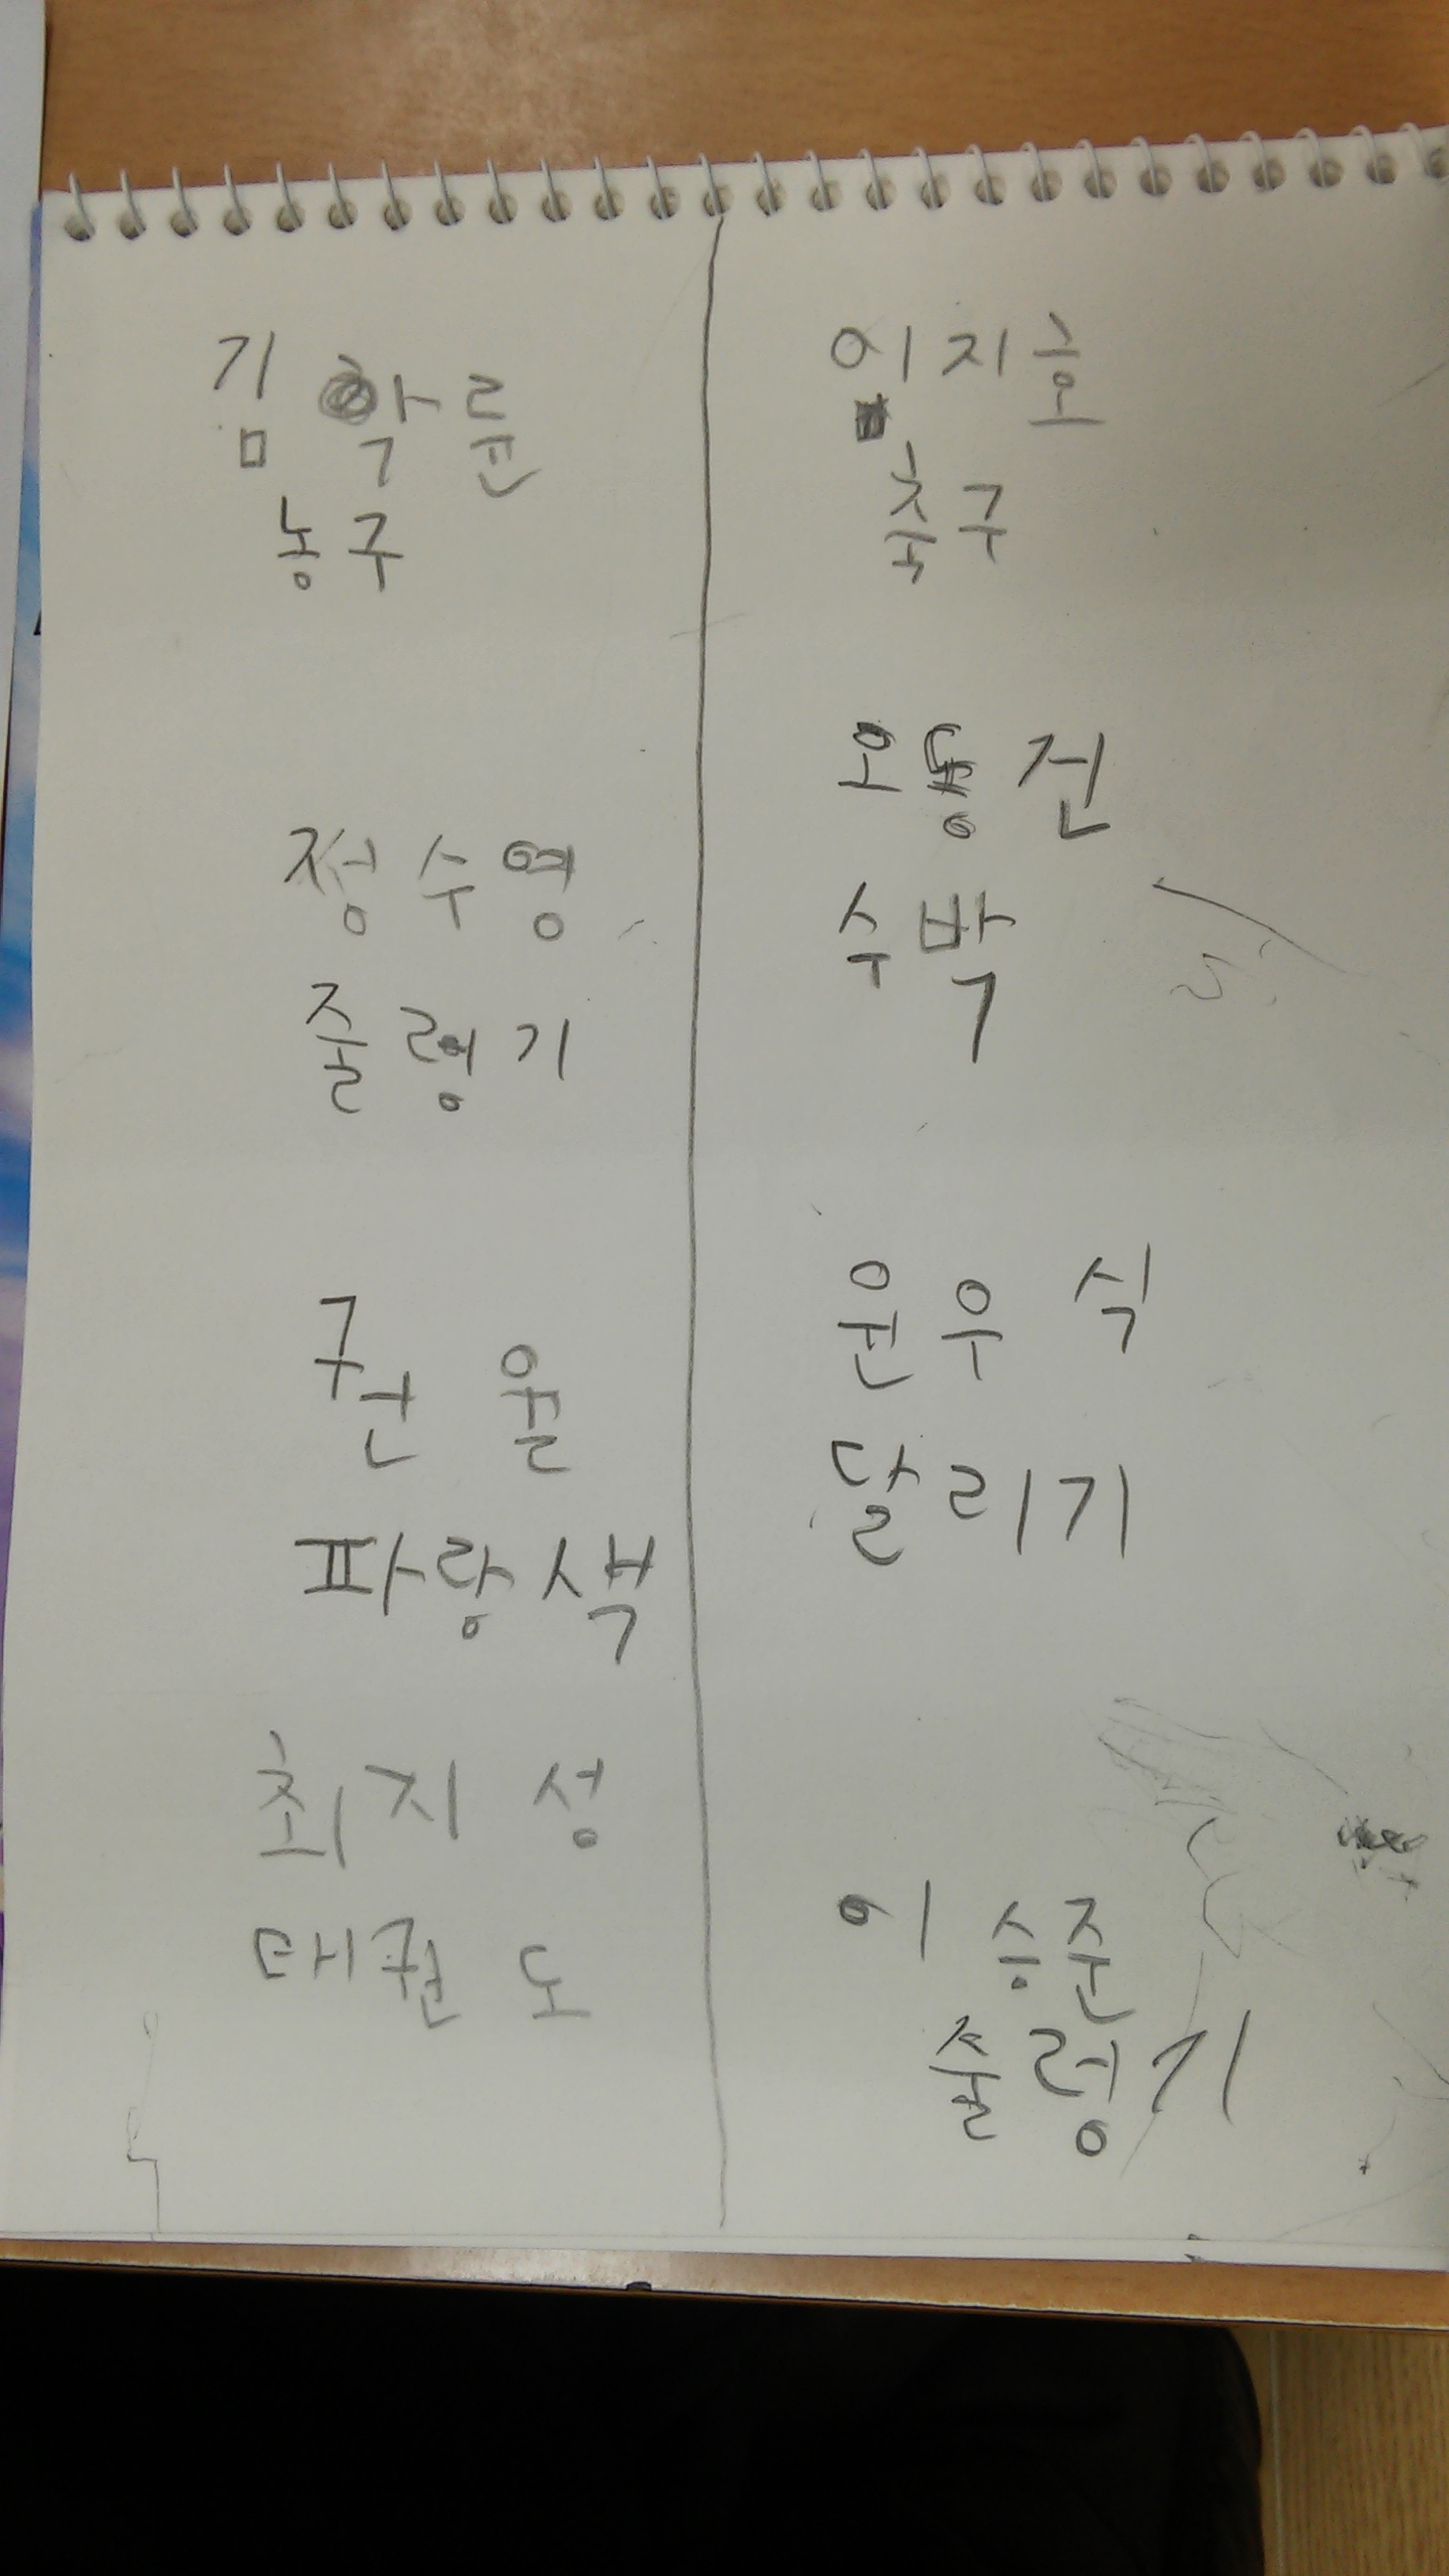 김학륜
농구
정수영
줄렁기
권율
파랑색
최지성
태권도
임지호
축구
오동건
수박
원우식
달리기
이승준
줄렁기